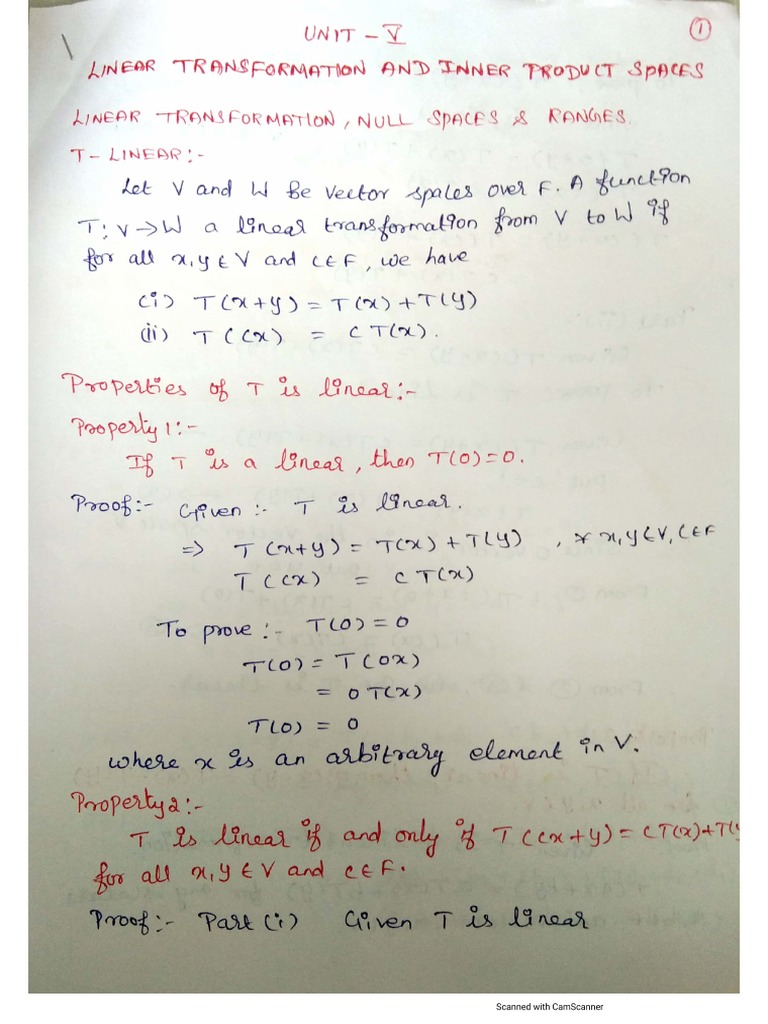 UNIT - V
1
LINEAR TRANSFORMATION AND INNER PRODUCT SPACES
LINEAR TRANSFORMATION, NULL SPACES & RANGES.
T - LINEAR:-
Let V and W be vector spaces over F. A function
T: V → W a linear transformation from V to W if
for all x, y ∈ V and c ∈ F, we have
(i) T(x+y) = T(x) + T(y)
(ii) T(cx) = c T(x).
Properties of T is linear:-
Property 1:-
If T is a linear, then T(0) = 0.
Proof:- Given:- T is linear.
⇒ T(x+y) = T(x) + T(y) , ∀ x, y ∈ V, c ∈ F
T(cx) = c T(x)
To prove:- T(0) = 0
T(0) = T(0x)
= 0 T(x)
T(0) = 0
where x is an arbitrary element in V.
Property 2:-
T is linear if and only if T(cx+y) = cT(x)+T(y
for all x, y ∈ V and c ∈ F.
Proof:- Part (i) Given T is linear
Scanned with CamScanner